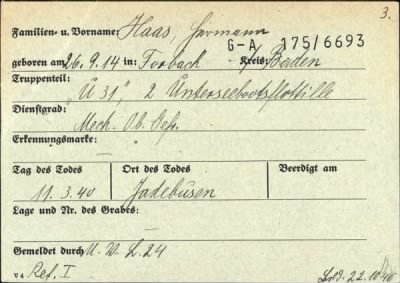 3.
Familien- u. Vorname: Haas, Hermann
G-A 175/6693
geboren am 26.9.14 in: Forbach Kreis: Baden
Truppenteil:
"U 31", 2 Unterseebootsflottille
Dienstgrad:
Mech. Ob. Gefr.
Erkennungsmarke:
Tag des Todes Ort des Todes Beerdigt am
11.3.40 Jadebusen
Lage und Nr. des Grabes:
Gemeldet durch U. W. L. 24
V 4 Ref. I 22.10.40